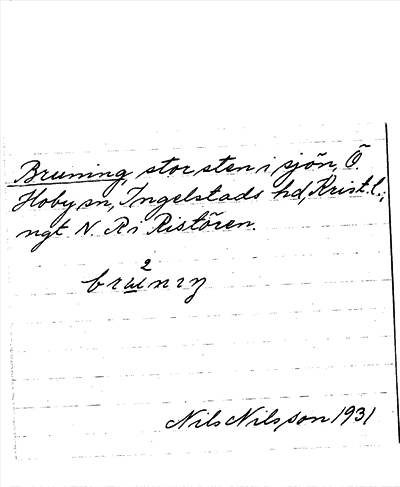 Bruning, stor sten i sjön, Ö.
Hoby sn, Ingelstads hd, Krist. l.;
ngt N. R
Nils Nilsson 1931